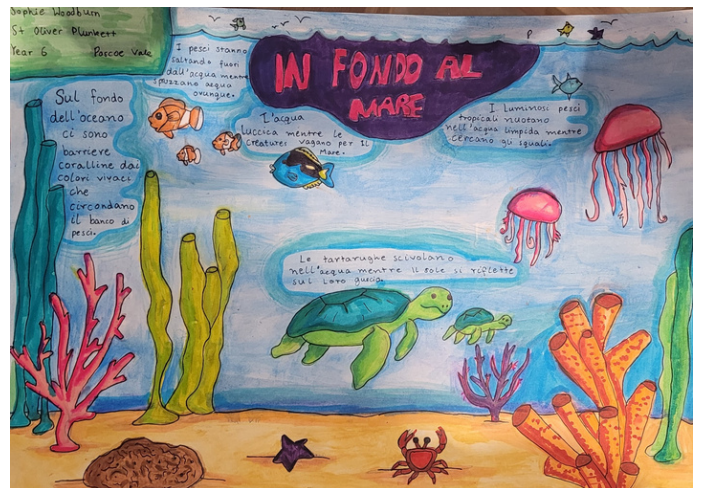 Sophie Woodburn
St Oliver Plunkett
Year 6 Pascoe Vale
IN FONDO AL
MARE
I pesci stanno
saltando fuori
dall'acqua mentre
spruzzano acqua
ovunque.
Sul fondo
dell'oceano
ci sono
barriere
coralline dai
colori vivaci
che
circondano
il banco di
pesci.
L'acqua
luccica mentre le
creature vagano per il
Mare.
I luminosi pesci
tropicali nuotano
nell'acqua limpida mentre
cercano gli squali.
Le tartarughe scivolano
nell'acqua mentre il sole si riflette
sul loro guscio.